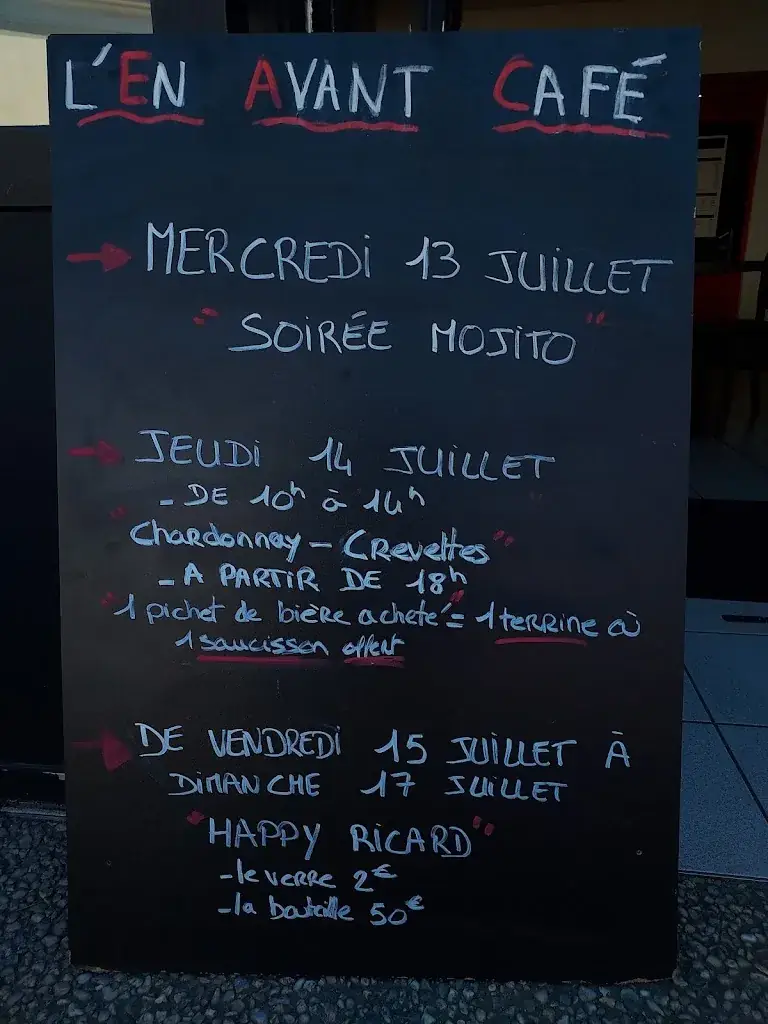 L'EN AVANT CAFÉ
MERCREDI 13 JUILLET
"SOIRÉE MOJITO"
JEUDI 14 JUILLET
- DE 10h à 14h
"Chardonnay - Crevettes"
- A PARTIR DE 18h
"1 pichet de bière acheté" = 1 terrine où
1 saucisson offert
DE VENDREDI 15 JUILLET À
DIMANCHE 17 JUILLET
"HAPPY RICARD"
- le verre 2€
- la bouteille 50€